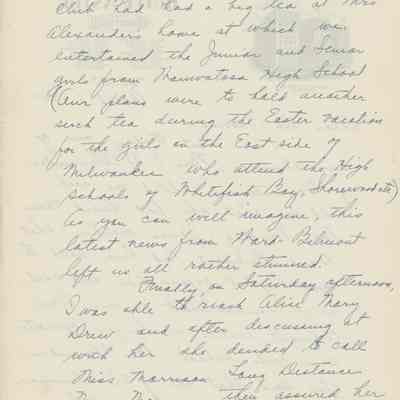 Club had had a big tea at Mrs
Alexander's home at which we
entertained the Junior and Senior
girls from Wauwatosa High School
(Our plans were to hold another
such tea during the Easter vacation
for the girls on the East side of
Milwaukee who attend the High
schools of Whitefish Bay, Shorewood etc)
As you can well imagine, this
latest news from Ward-Belmont
left us all rather stunned.
Finally, on Saturday afternoon,
I was able to reach Alice Mary
Drew and after discussing it
with her she decided to call
Miss Morrison Long Distance
then assured her